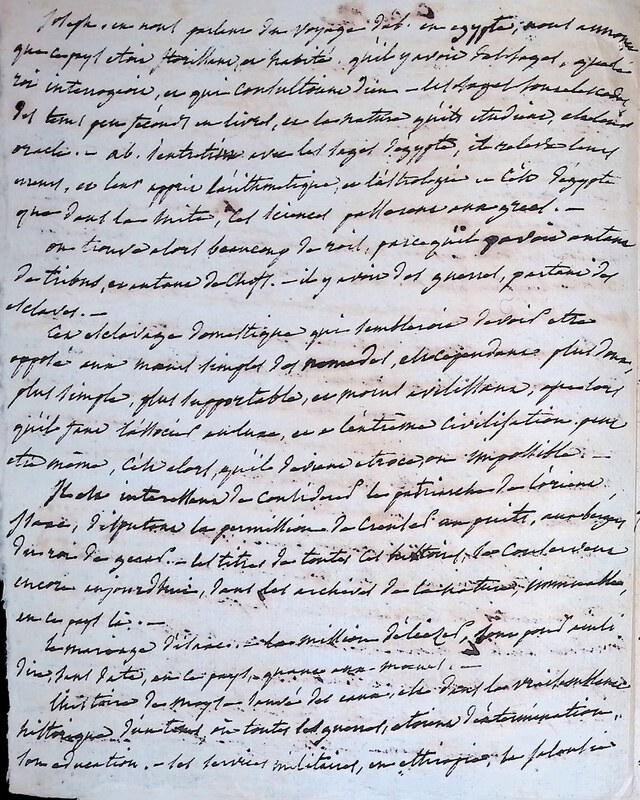 Joseph, en nous parlant du voyage d'ab. en egypte, nous annonce
que ce pays étoit florissant et habité. qu'il y avoit des sages, que le
roi interrogeoit, et que consultoient dieu — les sages sous
des tems peu féconds en livres, et la nature qu'ils étudioient, étoit leur
oracle. — ab. s'entretint avec les sages d'egypte, il releva leurs
erreurs, et leur apprit l'arithmetique, et l'astrologie — c'est d'egypte
que dans la suite, ces sciences passerent aux grecs. —
on trouve alors beaucoup de rois, parce qu'il y avoit autant
de tribus, et autant de chefs. — il y avoit des guerres, partant des
esclaves. —
Cet esclavage domestique qui sembleroit devoir etre
opposé aux mœurs simples des nomades, est cependant plus doux,
plus simple, plus supportable, et moins avilissant, que lors
qu'il faut l'associer au luxe, et a l'extrême civilisation, peut
etre même, c'est alors, qu'il devient atroce, ou impossible. —
Il est interessant de considerer le patriarche de l'orient
isaac, disputant la permission de creuser un puits, aux bergers
du roi de gerar. — les titres de toutes ces histoires, se conservent
encore aujourd'hui, dans les archives de la nature, immuable,
en ce pays là. —
le mariage d'isaac. — la mission d'eliezer, sont pour ainsi
dire, sans date, en ce pays, quant aux mœurs. —
l'histoire de moyse sauvé des eaux, est dans la vraisemblance
historique d'un tems, où toutes les guerres, etoient d'extermination.
son education. — ses services militaires, en ethiopie, la jalousie